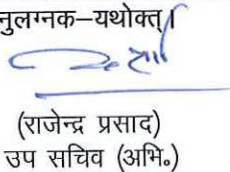 नुलग्नक–यथोक्त्।
(राजेन्द्र प्रसाद)
उप सचिव (अभि॰)